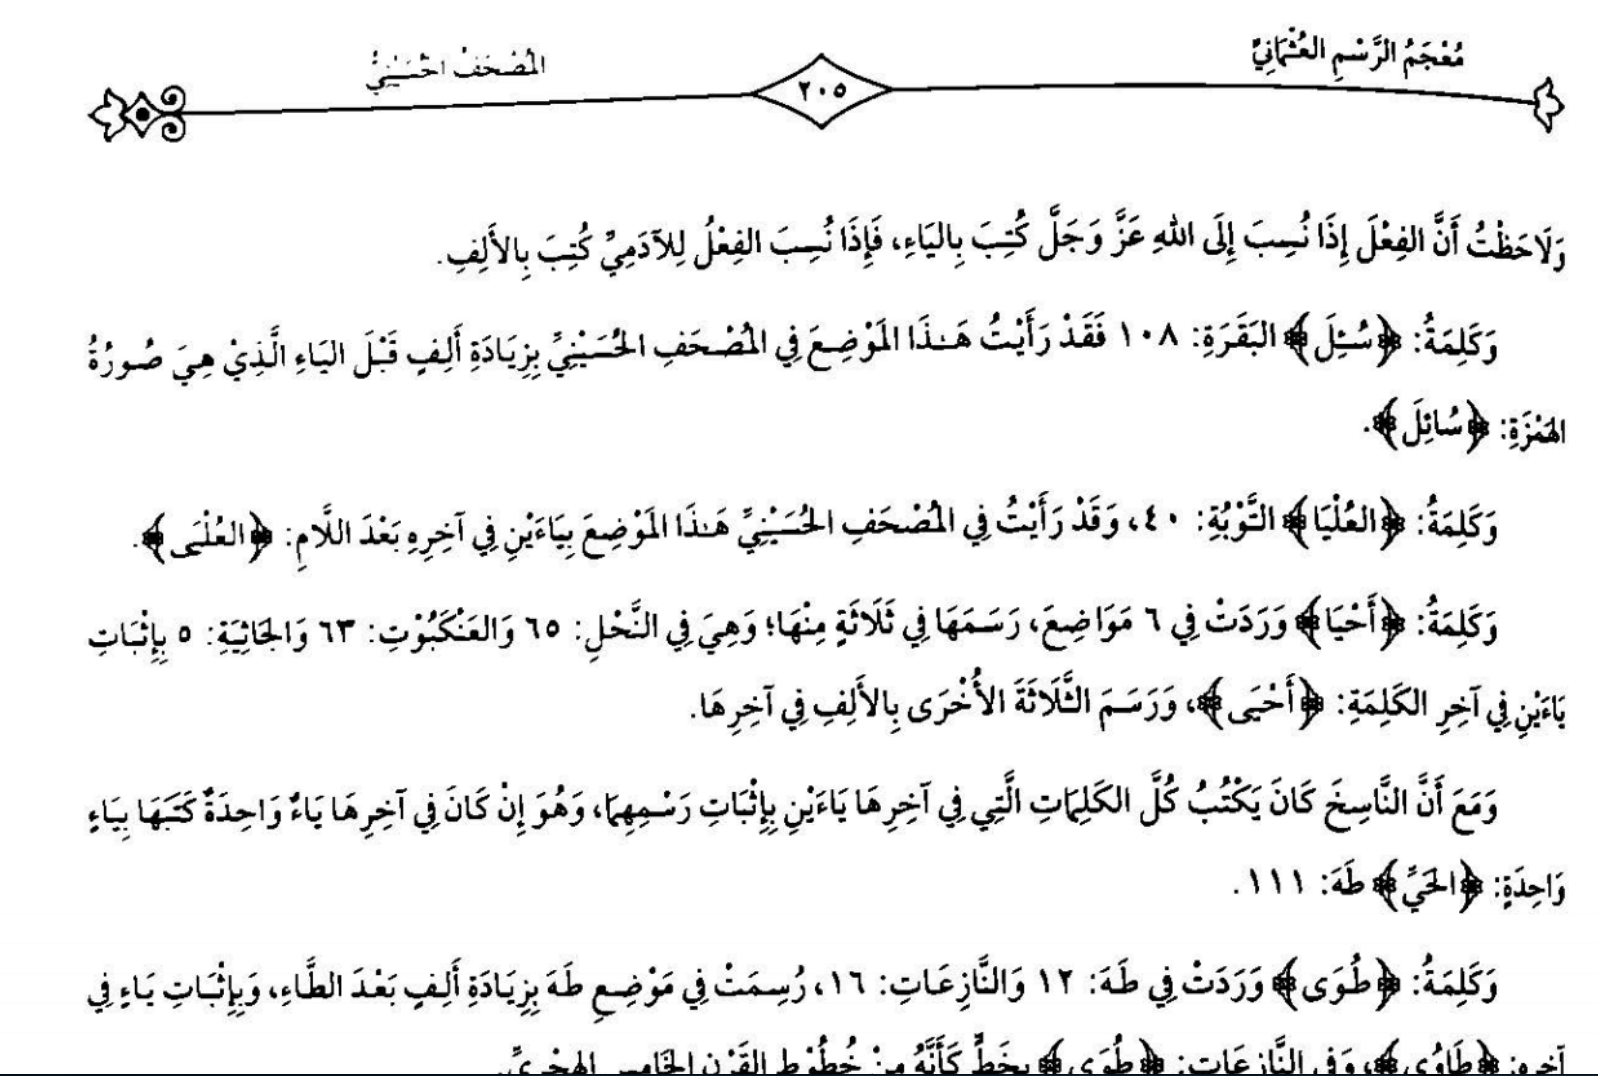 مُعْجَمُ الرَّسْمِ العُثْمَانِيِّ
٢٠٥
المُصْحَفُ الحُسَيْنِيُّ
وَلَاحَظْتُ أَنَّ الفِعْلَ إِذَا نُسِبَ إِلَى اللهِ عَزَّ وَجَلَّ كُتِبَ بِاليَاءِ، فَإِذَا نُسِبَ الفِعْلُ لِلآدَمِيِّ كُتِبَ بِالأَلِفِ.
وَكَلِمَةُ: ﴿سُئِلَ﴾ البَقَرَةِ: ١٠٨ فَقَدْ رَأَيْتُ هَـٰذَا المَوْضِعَ فِي المُصْحَفِ الحُسَيْنِيِّ بِزِيَادَةِ أَلِفٍ قَبْلَ اليَاءِ الَّذِيْ هِيَ صُورُةُ
الهَمْزَةِ: ﴿سُائِلَ﴾.
وَكَلِمَةُ: ﴿العُلْيَا﴾ التَّوْبَةِ: ٤٠، وَقَدْ رَأَيْتُ فِي المُصْحَفِ الحُسَيْنِيِّ هَـٰذَا المَوْضِعَ بِيَاءَيْنِ فِي آخِرِهِ بَعْدَ اللَّامِ: ﴿العُلْيَى﴾.
وَكَلِمَةُ: ﴿أَحْيَا﴾ وَرَدَتْ فِي ٦ مَوَاضِعَ، رَسَمَهَا فِي ثَلَاثَةٍ مِنْهَا؛ وَهِيَ فِي النَّحْلِ: ٦٥ وَالعَنْكَبُوْتِ: ٦٣ وَالجَاثِيَةِ: ٥ بِإِثْبَاتِ
يَاءَيْنِ فِي آخِرِ الكَلِمَةِ: ﴿أَحْيَى﴾، وَرَسَمَ الثَّلَاثَةَ الأُخْرَى بِالأَلِفِ فِي آخِرِهَا.
وَمَعَ أَنَّ النَّاسِخَ كَانَ يَكْتُبُ كُلَّ الكَلِمَاتِ الَّتِي فِي آخِرِهَا يَاءَيْنِ بِإِثْبَاتِ رَسْمِهِمَا، وَهُوَ إِنْ كَانَ فِي آخِرِهَا يَاءٌ وَاحِدَةٌ كَتَبَهَا بِيَاءٍ
وَاحِدَةٍ: ﴿الحَيِّ﴾ طَهَ: ١١١.
وَكَلِمَةُ: ﴿طُوَى﴾ وَرَدَتْ فِي طَهَ: ١٢ وَالنَّازِعَاتِ: ١٦، رُسِمَتْ فِي مَوْضِعِ طَهَ بِزِيَادَةِ أَلِفٍ بَعْدَ الطَّاءِ، وَبِإِثْبَاتِ يَاءٍ فِي
آخِرِهِ: ﴿طَاوُى﴾، وَفِي النَّازِعَاتِ: ﴿طُوَى﴾ بِخَطٍّ كَأَنَّهُ مِنْ خُطُوْطِ القَرْنِ الخَامِسِ الهِجْرِيِّ.